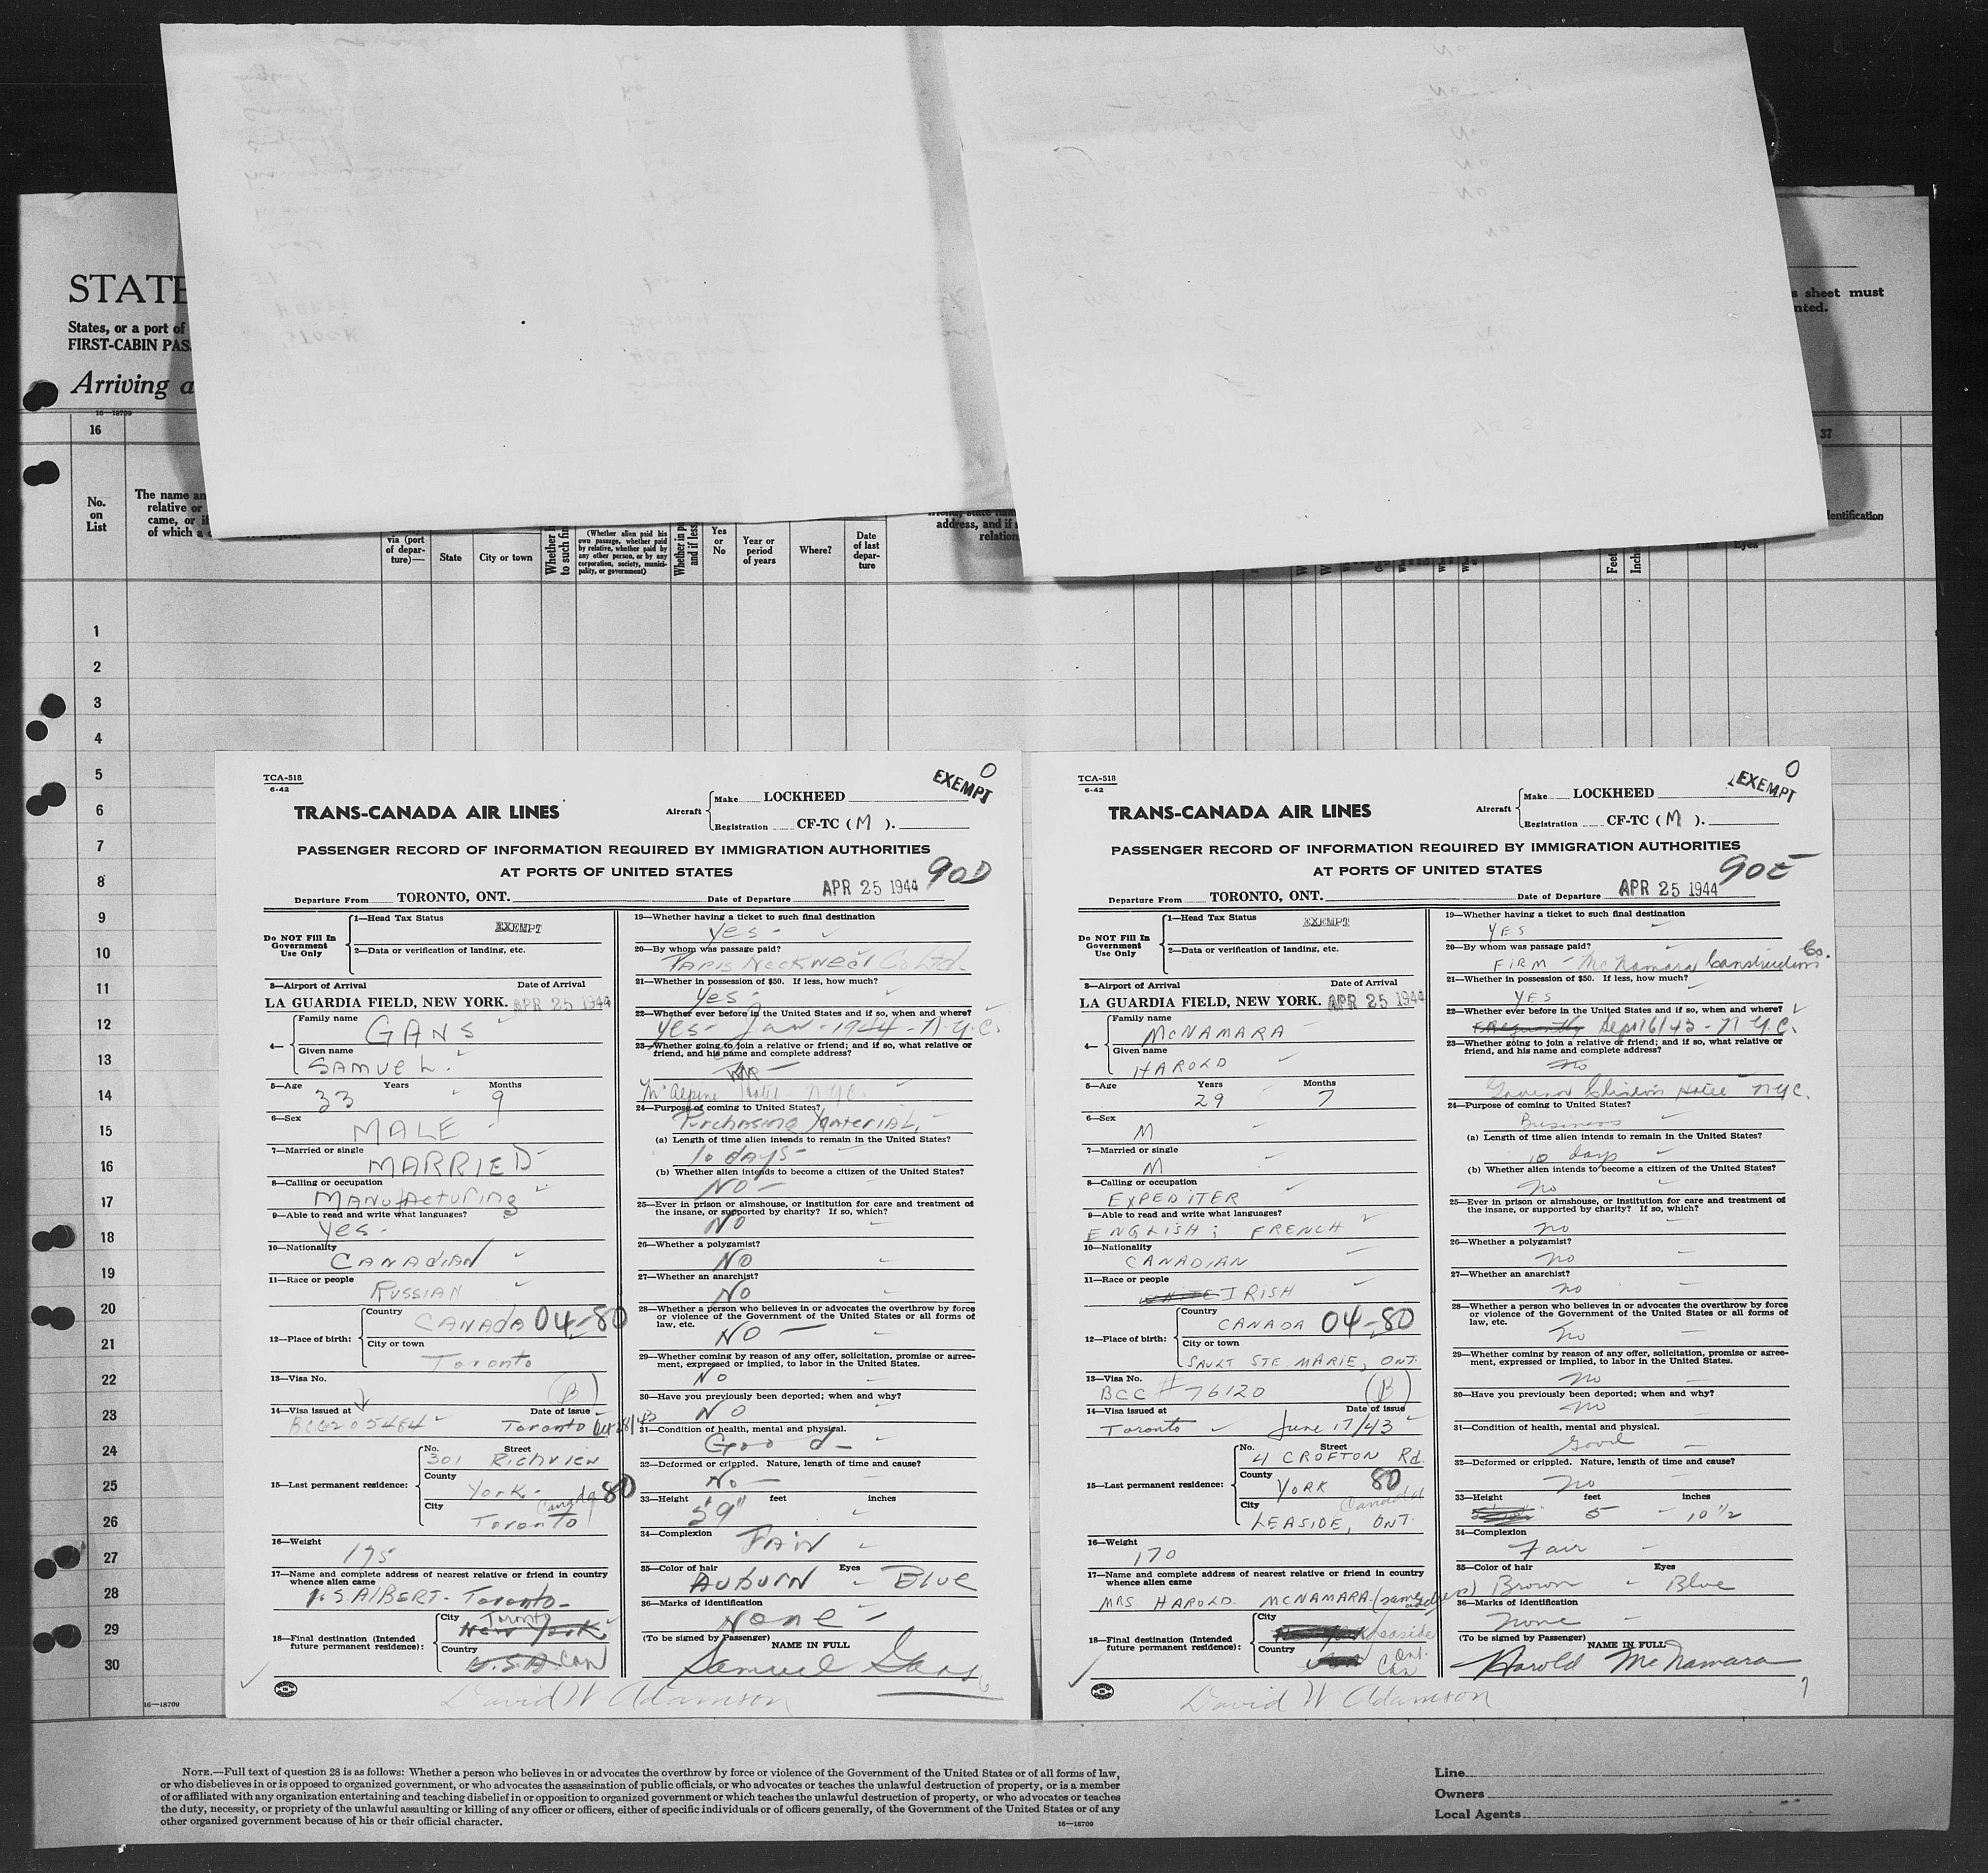 STATE
States, or a port of
FIRST-CABIN PAS
Arriving a
s sheet must
nted.
16—18709
16
37
No.
on
List
The name an
relative or
came, or if
of which a c
via (port
of depar-
ture)—
State
City or town
Whether
to such fin
(Whether alien paid his
own passage, whether paid
by relative, whether paid by
any other person, or by any
corporation, society, munici-
pality, or government)
Whether in po
and if less,
Yes
or
No
Year or
period
of years
Where?
Date
of last
depar-
ture
address, and if
relation
Feet
Inch
Eyes
dentification
1
2
3
4
5
6
7
8
9
10
11
12
13
14
15
16
17
18
19
20
21
22
23
24
25
26
27
28
29
30
16—18709
TCA-518
6-42
EXEMPT
0
TRANS-CANADA AIR LINES
Aircraft
Make LOCKHEED
Registration CF-TC (M).
PASSENGER RECORD OF INFORMATION REQUIRED BY IMMIGRATION AUTHORITIES
AT PORTS OF UNITED STATES
90D
Departure From TORONTO, ONT.
Date of Departure APR 25 1944
Do NOT Fill In
Government
Use Only
1—Head Tax Status EXEMPT
2—Data or verification of landing, etc.
3—Airport of Arrival Date of Arrival
LA GUARDIA FIELD, NEW YORK. APR 25 1944
4— Family name
GANS
Given name
SAMUEL.
5—Age Years Months
33 9
6—Sex
MALE
7—Married or single
MARRIED
8—Calling or occupation
MANUfActuring
9—Able to read and write what languages?
Yes -
10—Nationality
CANAdIAN
11—Race or people
RUSSIAN
12—Place of birth: Country
CANAdA 04-80
City or town
Toronto
13—Visa No.
(B)
14—Visa issued at Date of issue
Toronto
15—Last permanent residence: No. Street
301 Richview
County
York - 80
City Canada
Toronto
16—Weight
175
17—Name and complete address of nearest relative or friend in country
whence alien came
S. AlBERT - Toronto -
18—Final destination (Intended
future permanent residence): City
Toronto
New York
Country
U.S.A. CAN
19—Whether having a ticket to such final destination
yes -
20—By whom was passage paid?
PARIS NeckweaR Co Ltd.
21—Whether in possession of $50. If less, how much?
yes -
22—Whether ever before in the United States and if so, when and where?
yes - Jan - 1944 - N.Y.C.
23—Whether going to join a relative or friend; and if so, what relative or
friend, and his name and complete address?
McAlpine Hotel - NYC.
24—Purpose of coming to United States?
Purchasing MATERIAL,
(a) Length of time alien intends to remain in the United States?
10 days -
(b) Whether alien intends to become a citizen of the United States?
NO -
25—Ever in prison or almshouse, or institution for care and treatment of
the insane, or supported by charity? If so, which?
NO
26—Whether a polygamist?
NO
27—Whether an anarchist?
NO
28—Whether a person who believes in or advocates the overthrow by force
or violence of the Government of the United States or all forms of
law, etc.
NO —
29—Whether coming by reason of any offer, solicitation, promise or agree-
ment, expressed or implied, to labor in the United States.
NO
30—Have you previously been deported; when and why?
NO
31—Condition of health, mental and physical.
Good -
32—Deformed or crippled. Nature, length of time and cause?
No -
33—Height feet inches
5' 9"
34—Complexion
FAIR
35—Color of hair Eyes
AUBURN - Blue
36—Marks of identification
None -
(To be signed by Passenger) NAME IN FULL
Samuel Gans
David W Adamson
TCA-518
6-42
EXEMPT
0
TRANS-CANADA AIR LINES
Aircraft
Make LOCKHEED
Registration CF-TC (M).
PASSENGER RECORD OF INFORMATION REQUIRED BY IMMIGRATION AUTHORITIES
AT PORTS OF UNITED STATES
90E
Departure From TORONTO, ONT.
Date of Departure APR 25 1944
Do NOT Fill In
Government
Use Only
1—Head Tax Status EXEMPT
2—Data or verification of landing, etc.
3—Airport of Arrival Date of Arrival
LA GUARDIA FIELD, NEW YORK. APR 25 1944
4— Family name
MCNAMARA
Given name
HAROLD
5—Age Years Months
29 7
6—Sex
M
7—Married or single
M
8—Calling or occupation
EXPEDITER
9—Able to read and write what languages?
ENGLISH; FRENCH
10—Nationality
CANADIAN
11—Race or people
WHITE IRISH
12—Place of birth: Country
CANADA 04-80
City or town
SAULT STE. MARIE, ONT.
13—Visa No.
BCC #76120 (B)
14—Visa issued at Date of issue
Toronto June 17/43
15—Last permanent residence: No. Street
4 CROFTON Rd.
County
YORK 80
City Canada
LEASIDE, ONT.
16—Weight
170
17—Name and complete address of nearest relative or friend in country
whence alien came
MRS HAROLD MCNAMARA (same address)
18—Final destination (Intended
future permanent residence): City
Leaside
Country Ont.
Can
19—Whether having a ticket to such final destination
YES
20—By whom was passage paid?
FIRM - McNamara Construction Co.
21—Whether in possession of $50. If less, how much?
YES
22—Whether ever before in the United States and if so, when and where?
frequently Sept 16/43 - N.Y.C.
23—Whether going to join a relative or friend; and if so, what relative or
friend, and his name and complete address?
no
Govenor Clinton Hotel NYC.
24—Purpose of coming to United States?
Business
(a) Length of time alien intends to remain in the United States?
10 days
(b) Whether alien intends to become a citizen of the United States?
no
25—Ever in prison or almshouse, or institution for care and treatment of
the insane, or supported by charity? If so, which?
no
26—Whether a polygamist?
no
27—Whether an anarchist?
no
28—Whether a person who believes in or advocates the overthrow by force
or violence of the Government of the United States or all forms of
law, etc.
no
29—Whether coming by reason of any offer, solicitation, promise or agree-
ment, expressed or implied, to labor in the United States.
no
30—Have you previously been deported; when and why?
no
31—Condition of health, mental and physical.
Good
32—Deformed or crippled. Nature, length of time and cause?
no
33—Height feet inches
5 - 10 1/2
34—Complexion
Fair
35—Color of hair Eyes
Brown Blue
36—Marks of identification
none
(To be signed by Passenger) NAME IN FULL
Harold McNamara
David W Adamson
NOTE.—Full text of question 28 is as follows: Whether a person who believes in or advocates the overthrow by force or violence of the Government of the United States or of all forms of law,
or who disbelieves in or is opposed to organized government, or who advocates the assassination of public officials, or who advocates or teaches the unlawful destruction of property, or is a member
of or affiliated with any organization entertaining and teaching disbelief in or opposition to organized government or which teaches the unlawful destruction of property, or who advocates or teaches
the duty, necessity, or propriety of the unlawful assaulting or killing of any officer or officers, either of specific individuals or of officers generally, of the Government of the United States or of any
other organized government because of his or their official character.
16—18709
Line
Owners
Local Agents